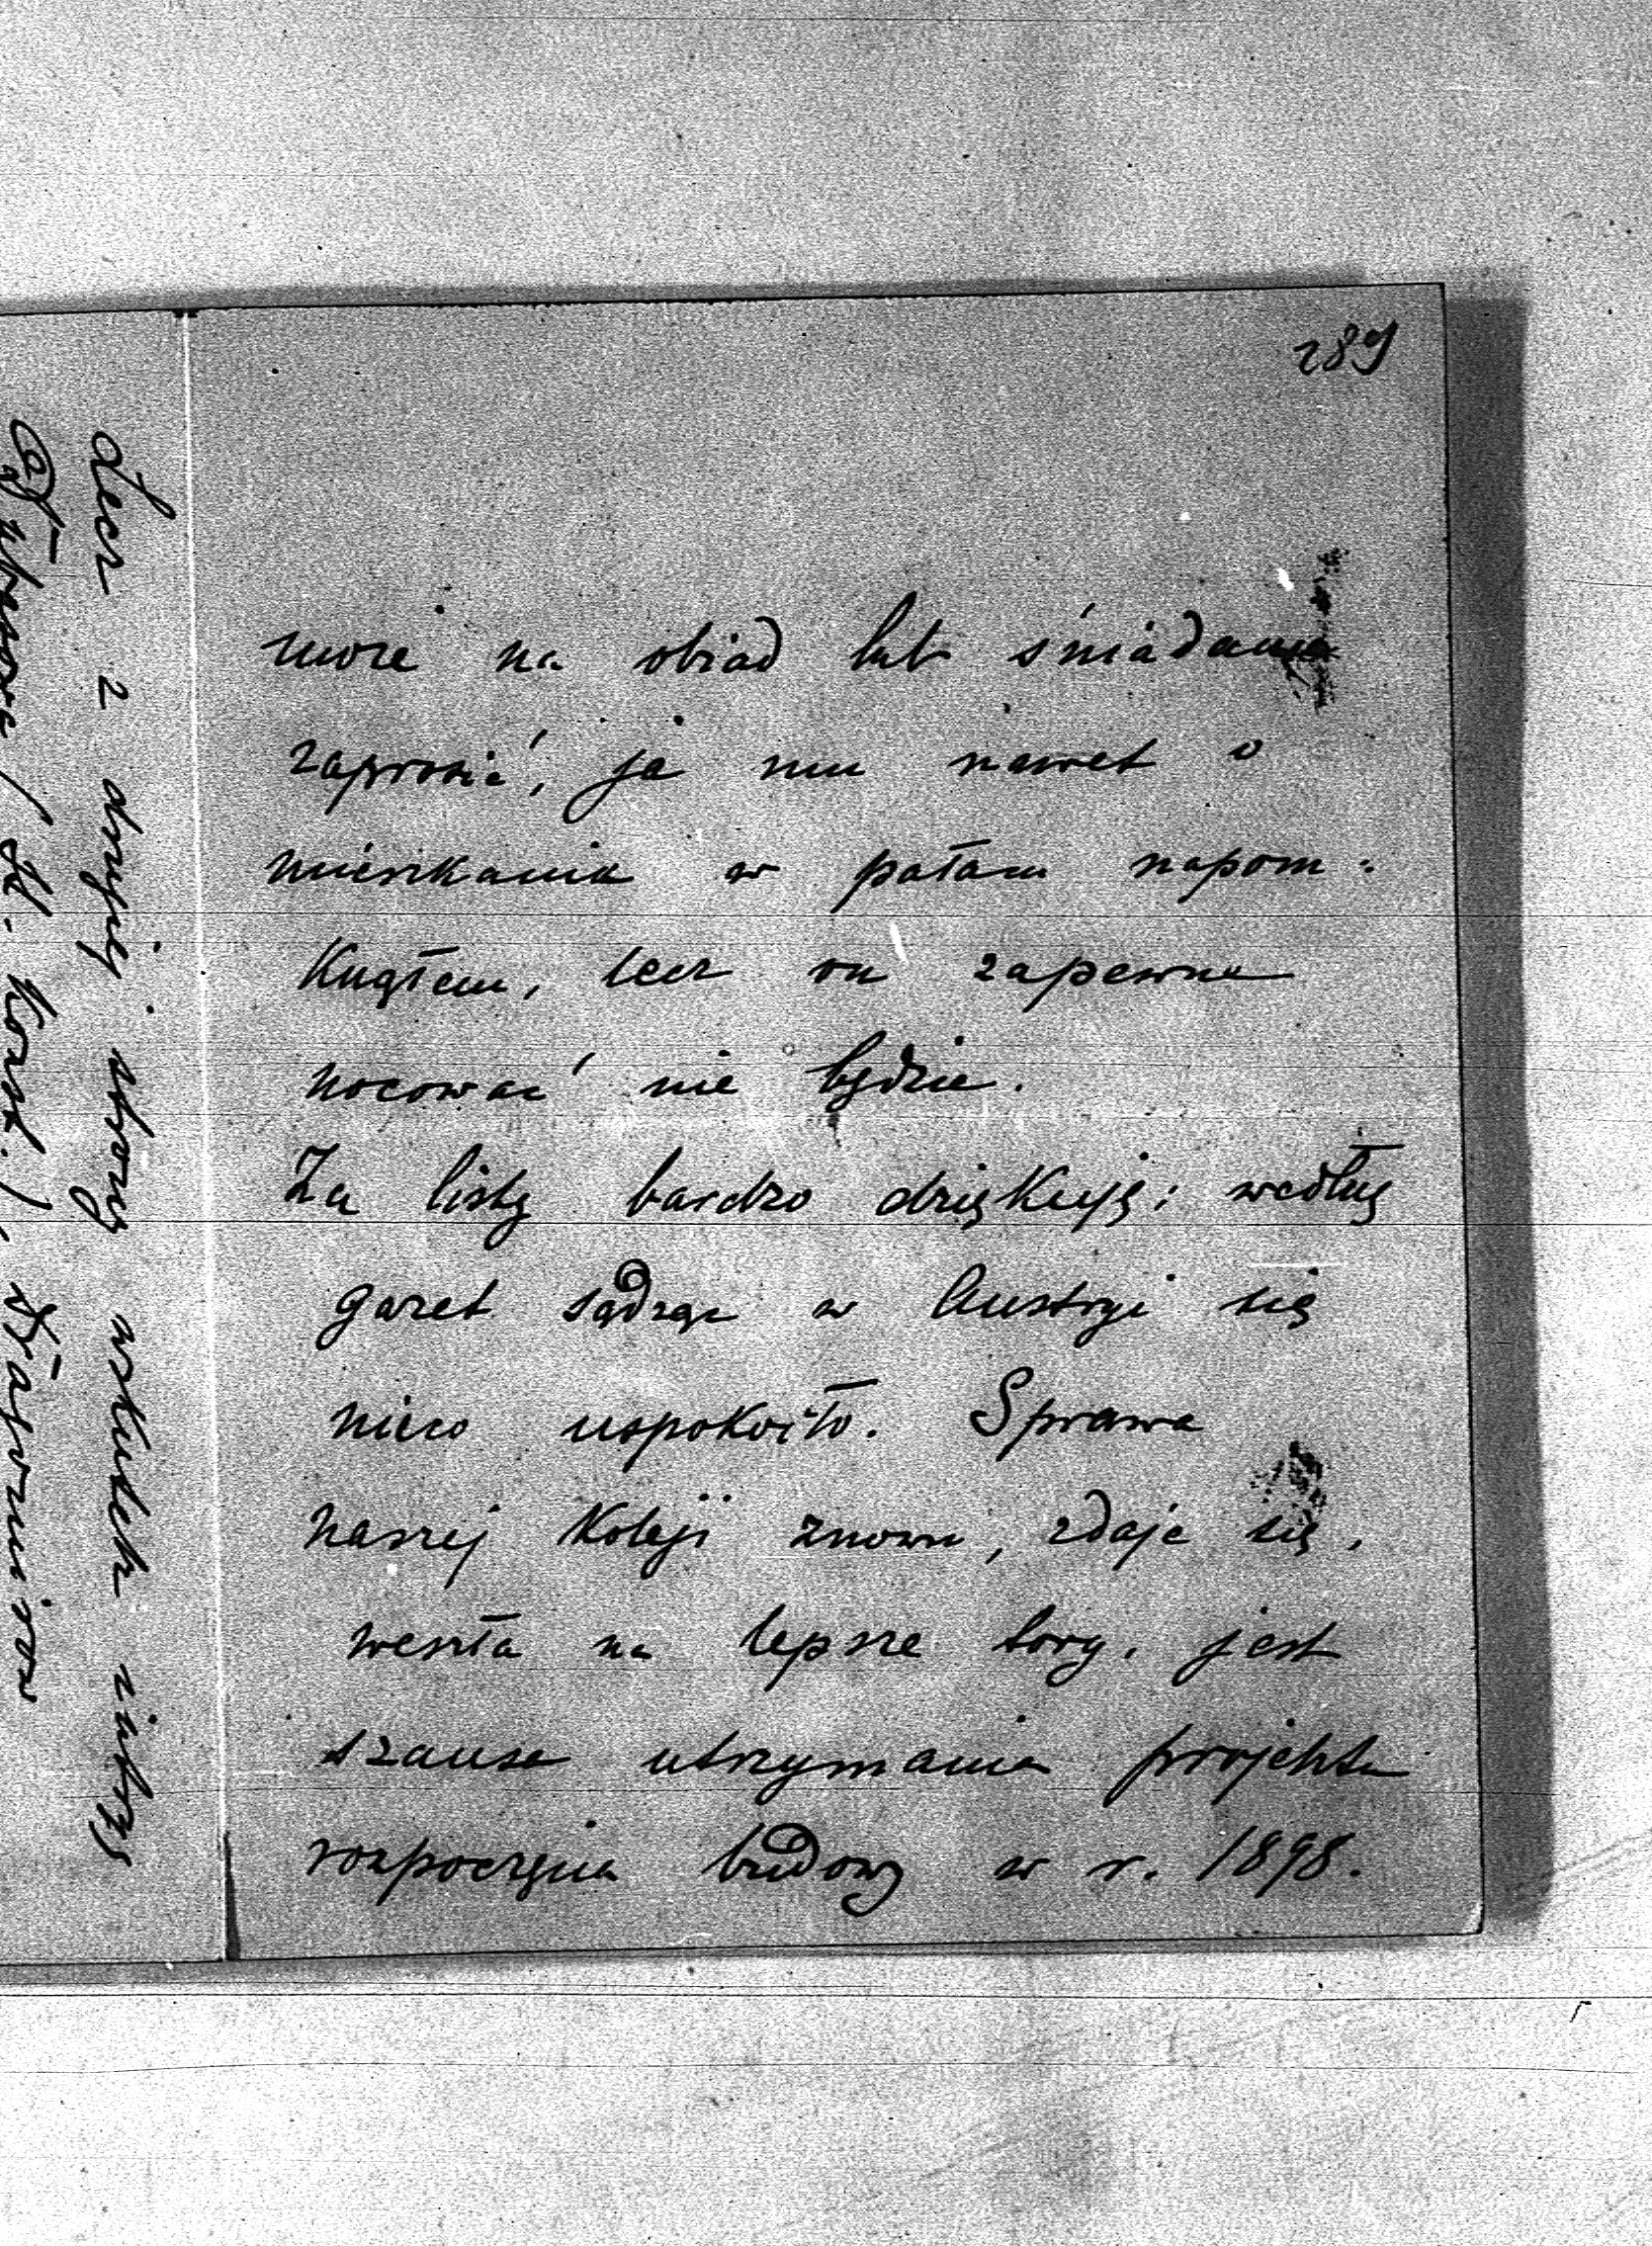 289
może na obiad lub śniadanie
zaprosić, ja mu nawet o
mieszkaniu w pałacu napom:
knąłem, lecz on zapewne
nocować nie będzie.
Za listy bardzo dziękuję; według
gazet sądząc w Austryi się
nieco uspokoiło. Sprawa
naszej koleji znowu, zdaje się,
weszła na lepsze tory, jest
szansa utrzymania projektu
rozpoczęcia budowy w r. 1898.
lecz z drugiej strony wskutek